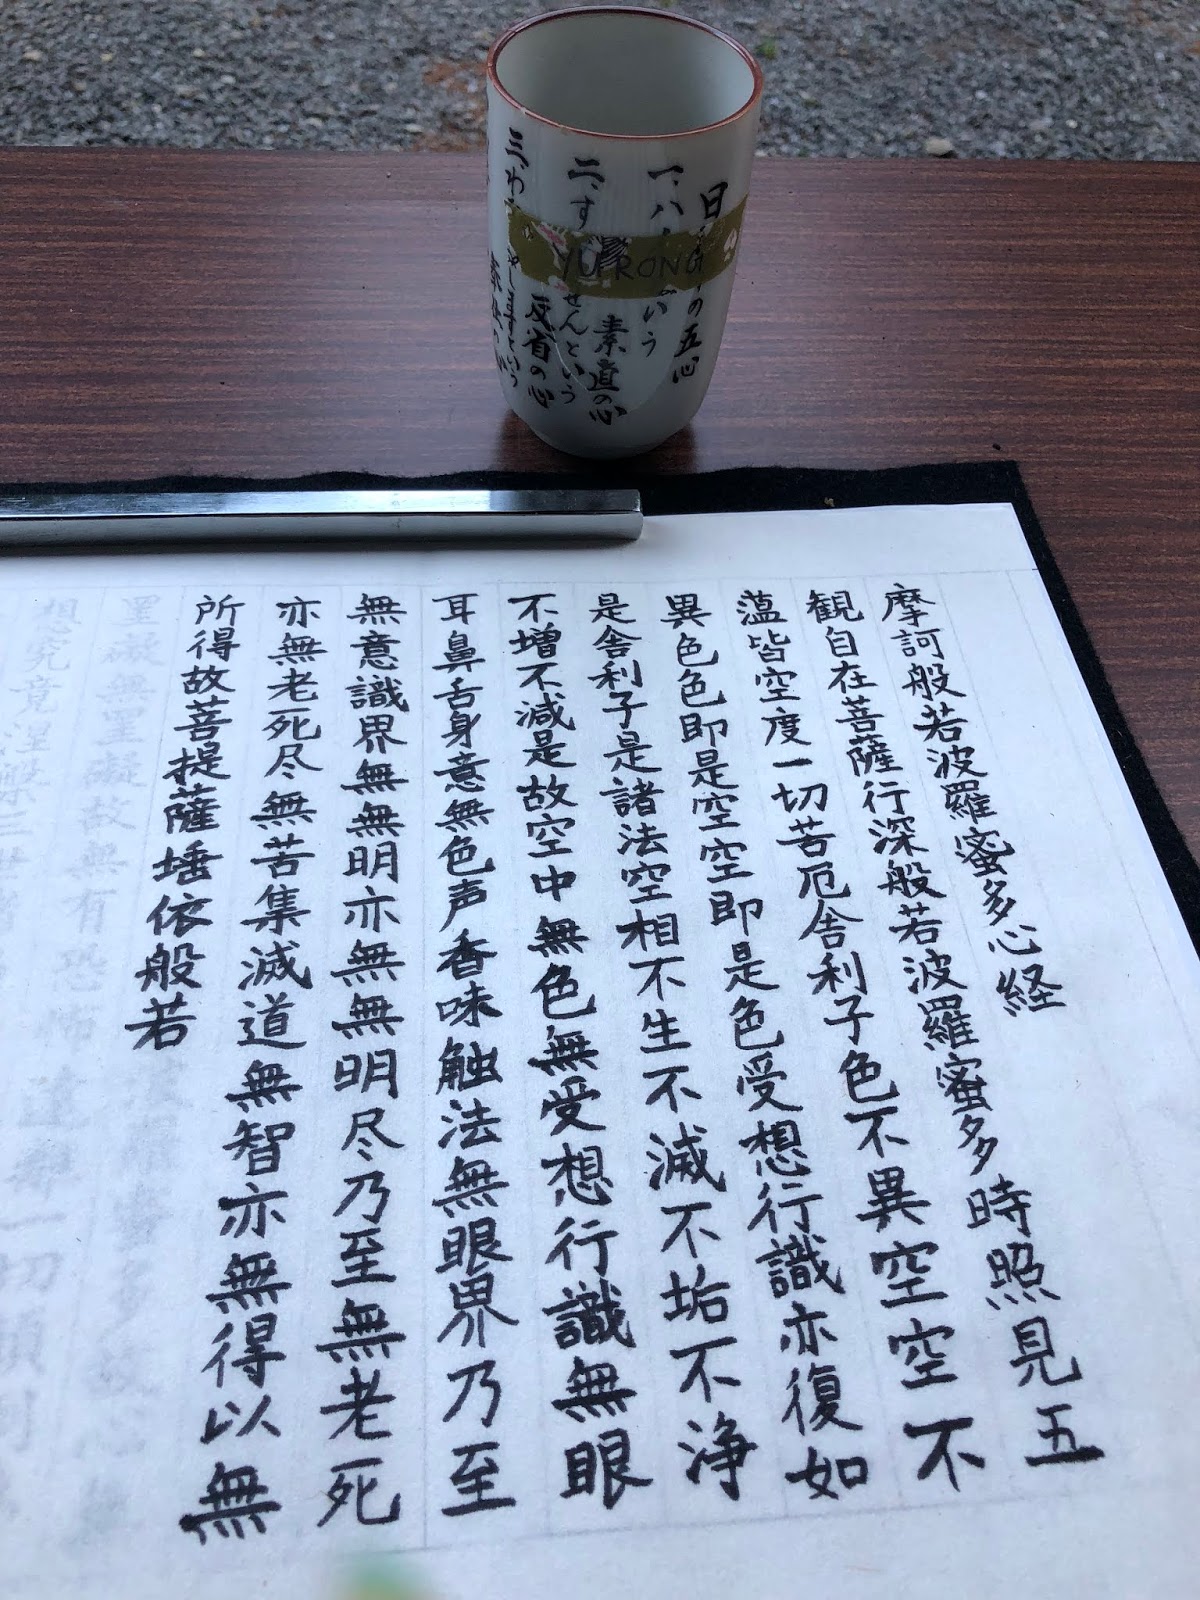 日の五心
一、ハいう
素直の心
二、すせんという
反省の心
三、わしますという
の心
YURONG
摩訶般若波羅蜜多心経
観自在菩薩行深般若波羅蜜多時照見五
薀皆空度一切苦厄舎利子色不異空空不
異色色即是空空即是色受想行識亦復如
是舎利子是諸法空相不生不滅不垢不浄
不増不減是故空中無色無受想行識無眼
耳鼻舌身意無色声香味触法無眼界乃至
無意識界無無明亦無無明尽乃至無老死
亦無老死尽無苦集滅道無智亦無得以無
所得故菩提薩埵依般若
罣礙無罣礙故無有恐怖
想究竟涅槃三世